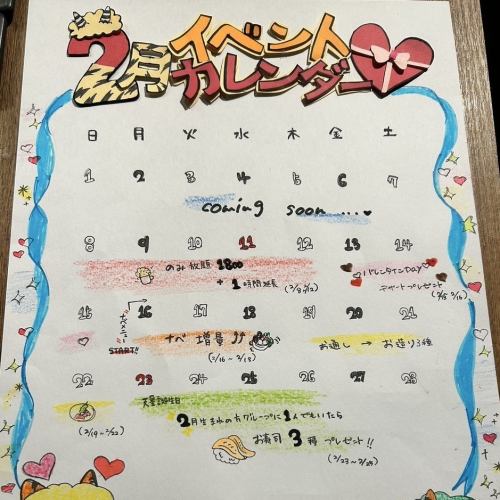 2月イベント
カレンダー
日 月 火 水 木 金 土
1 2 3 4 5 6 7
coming soon....
8 9 10 11 12 13 14
のみ放題 1800
+1時間延長 (2/8~2/12)
バレンタインDAY
デザートプレゼント
(2/13~2/15)
15 16 17 18 19 20 21
START!!
ナベ増量!!
(2/16~2/18)
お通し → お造り3種
22 23 24 25 26 27 28
(2/19~2/22)
天皇誕生日
2月生まれの方グループに1人でもいたら
お寿司3種プレゼント!!